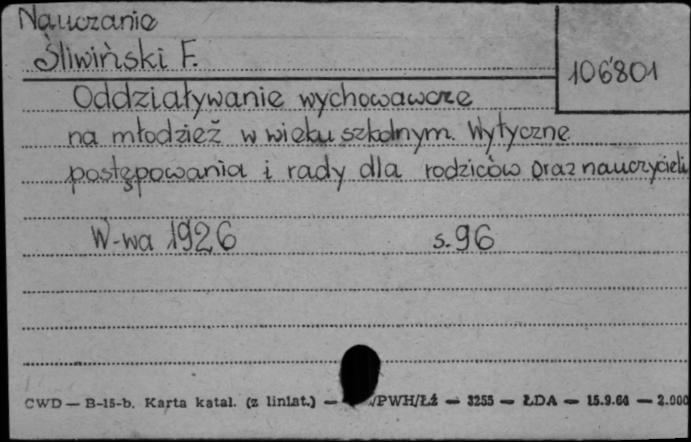 Nauczanie
Śliwiński F.
106801
Oddziaływanie wychowawcze
na młodzież w wieku szkolnym. Wytyczne
postępowania i rady dla rodziców oraz nauczycieli
W-wa 1926 s. 96
CWD — B-15-b. Karta katal. (z liniat.) — /PWH/Łź — 3255 — ŁDA — 15.9.64 — 2.000